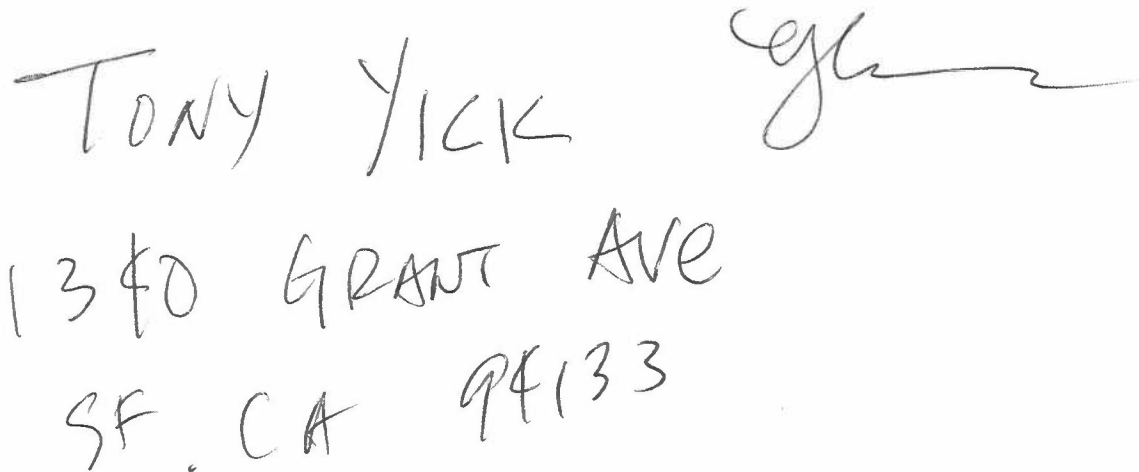 TONY YICK
1340 GRANT AVE
SF. CA 94133